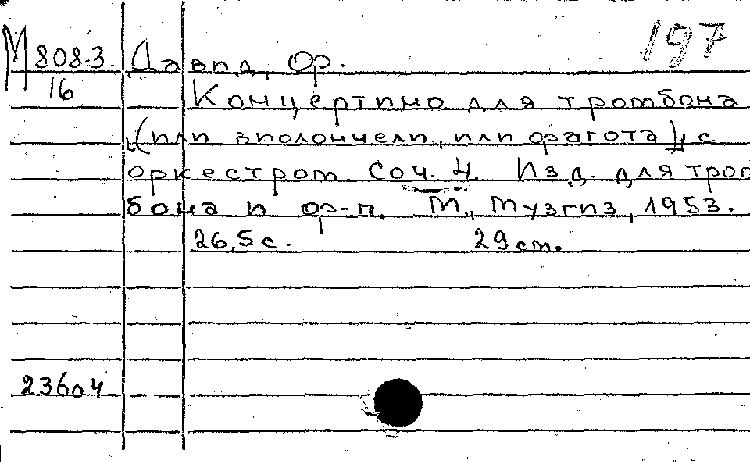 197
М 808-3 Давид, Ф.
16 Концертино для тромбона
(или виолончели, или фагота), с
оркестром Соч. 4. Изд. для тром
бона и ф-п. М., Музгиз, 1953.
26,5 с. 29 см.
23604